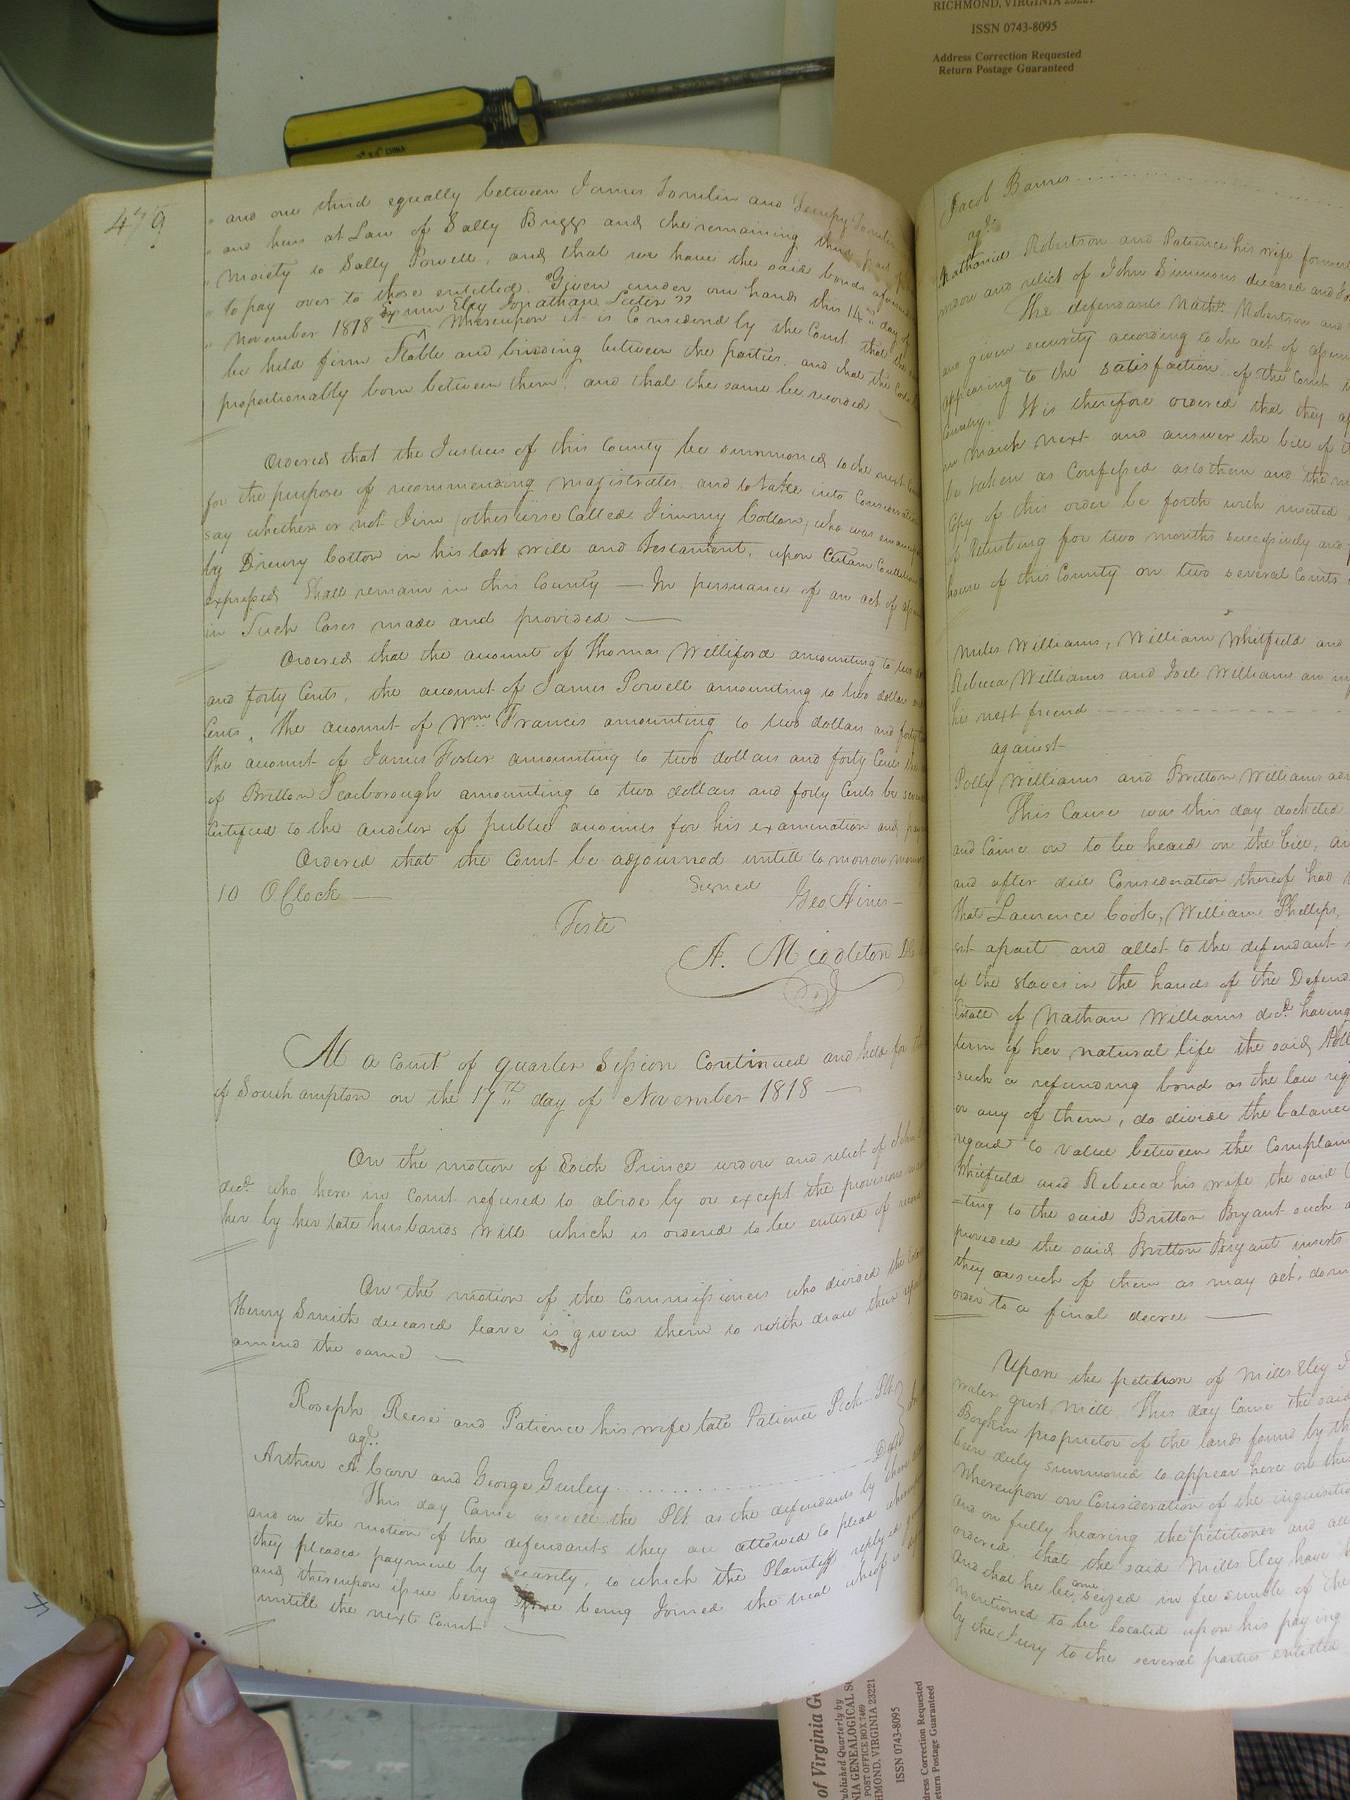 RICHMOND, VIRGINIA 23221
ISSN 0743-8095
Address Correction Requested
Return Postage Guaranteed
479
" and one third equally between James Tomlin and
" and heirs at Law of Sally Briggs and the remaining third part
" moiety to Sally Powell, and that we have the said bonds
" to pay over to those entitled. Given under our hands this 14th day
" November 1818 Exum Eley Jonathan Lister "
Whereupon it is Considered by the Court that the
be held firm Stable and binding between the parties and that the Costs
proportionably born between them, and that the same be recorded
Ordered that the Justices of this County be summoned to the next
for the purpose of recommending magistrates and to take into Consideration
say whether or not Jim (otherwise Called Jimmy Cotton, who was
by Drewry Cotton in his last will and Testament, upon Certain
expressed Shall remain in this County — In persuance of an act of
in Such Cases made and provided —
Ordered that the amount of Thomas Williford amounting to two
and forty Cents, the amount of James Powell amounting to two dollars
Cents, the amount of Wm Francis amounting to two dollars and forty
the amount of James Foster amounting to two dollars and forty Cents
of Britton Scarborough amounting to two dollars and forty Cents be
Certified to the auditor of public accounts for his examination and
Ordered that the Court be adjourned untill to morrow
10 O Clock —
Signed Geo Hines -
Teste
A. Middleton
At a Court of quarter Session Continued and held for
of Southampton on the 17th day of November 1818 —
On the motion of Edith Prince widow and relict of John
decd. who here in Court refused to abide by or except the provisions
her by her late husbands Will which is ordered to be entered of record
On the motion of the Commissioners who divided the
Henry Smith deceased leave is given them to with draw their
amend the same —
Roseph Reese and Patience his wife late Patience Peck Plt
agt.
Arthur A. Carr and George Gurley .......... Defts
This day Came as well the Plt as the defendants by
and on the motion of the defendants they are allowed to plead
they pleaded payment by security, to which the Plaintiff reply
and thereupon issue being being Joined the trial whereof is
untill the next Court —
Jacob Barnes ..........
agt.
Nathaniel Robertson and Patience his wife
widow and relict of John Simmons deceased and
The defendants Nathl. Robertson and
given security according to the act of
appearing to the satisfaction of the Court
Country. It is therefore ordered that they
in March next and answer the bill of
be taken as Confessed as to them and the
Copy of this order be forth with inserted
of Petersburg for two months successively and
house of this County on two several Courts
Miles Williams, William Whitfield and
Rebecca Williams and Joel Williams an
his next friend - - - - - -
against
Polly Williams and Britton Williams
This Cause was this day docketed
and Came on to be heard on the bill,
and after due Consideration thereof had
that Laurence Cook, William Phillips,
set apart and allot to the defendant
of the slaves in the hands of the
Estate of Nathan Williams decd. having
term of her natural life the said
such a refunding bond as the law
or any of them, do divide the balance
regard to value between the
Whitfield and Rebecca his wife the said
=ting to the said Britton Bryant such
provided the said Britton Bryant
they or such of them as may act, do
order to a final decree —
Upon the petition of Mills Eley
water grist Mill This day Came the said
Boykin proprietor of the lands found by the
been duly summoned to appear here on this
Whereupon on Consideration of the
and on fully hearing the petitioner and
ordered that the said Mills Eley have
and that he be come seized in fee simple of the
mentioned to be located upon his paying
by the Jury to the several parties entitled
of Virginia
Published Quarterly by
POST OFFICE BOX 7469
RICHMOND, VIRGINIA 23221
ISSN 0743-8095
Address Correction Requested
Return Postage Guaranteed